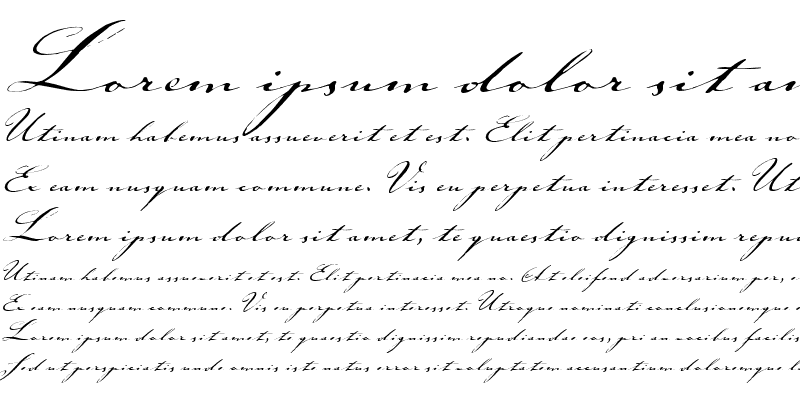 Lorem ipsum dolor sit am
Utinam habemus assueverit et est. Elit pertinacia mea no
Ex eam nusquam commune. Vis eu perpetua interesset. Ut
Lorem ipsum dolor sit amet, te quaestio dignissim repu
Utinam habemus assueverit et est. Elit pertinacia mea no. At eleifend adversarium per, e
Ex eam nusquam commune. Vis eu perpetua interesset. Utroque nominati conclusionemque
Lorem ipsum dolor sit amet, te quaestio dignissim repudiandae eos, pri an vocibus facilis
Sed ut perspiciatis unde omnis iste natus error sit voluptatem accusantium doloremque l